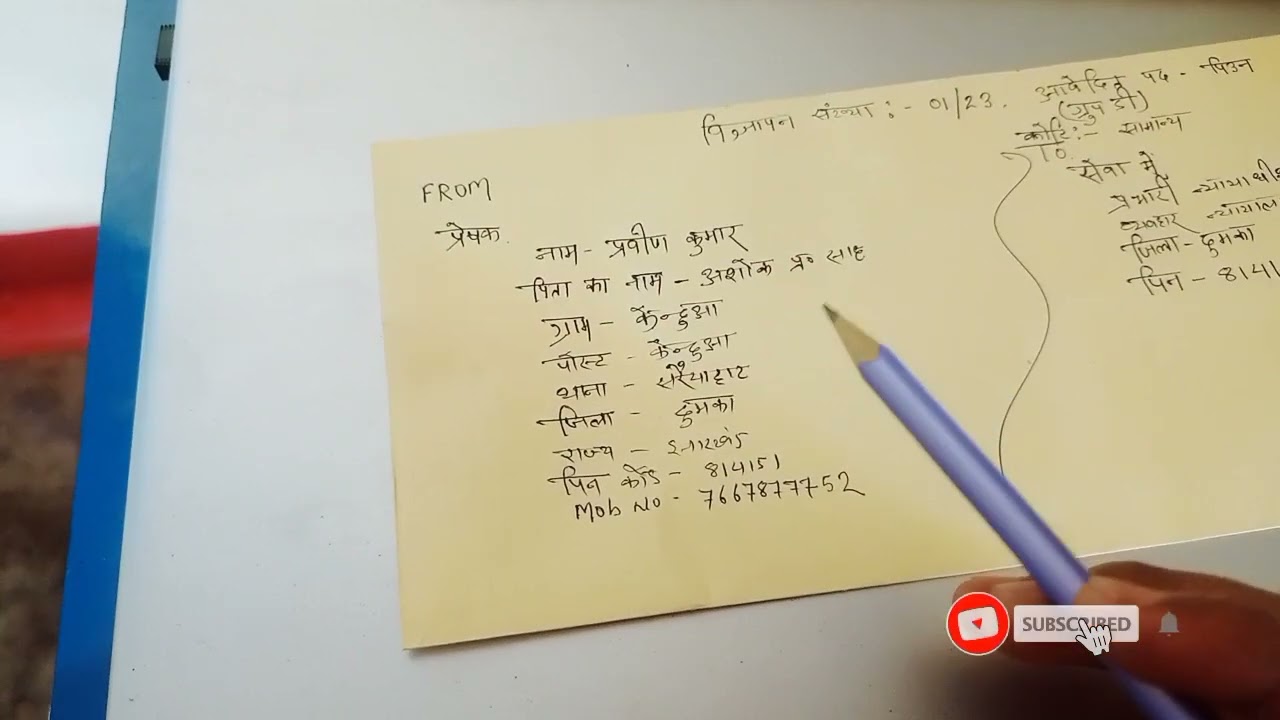 विज्ञापन संख्या :- 01/23. आवेदित पद - पिउन
(ग्रुप डी)
कोटि :- सामान्य
FROM
प्रेषक.
नाम - प्रवीण कुमार
पिता का नाम - अशोक प्र० साह
ग्राम - केन्दुआ
पोस्ट - केन्दुआ
थाना - सरैयाहाट
जिला - दुमका
राज्य - झारखंड
पिन कोड - 814151
Mob No - 7667877752
TO.
सेवा में
प्रभारी न्यायाधीश
व्यवहार न्यायाल
जिला - दुमका
पिन - 8141
SUBSCRIBED